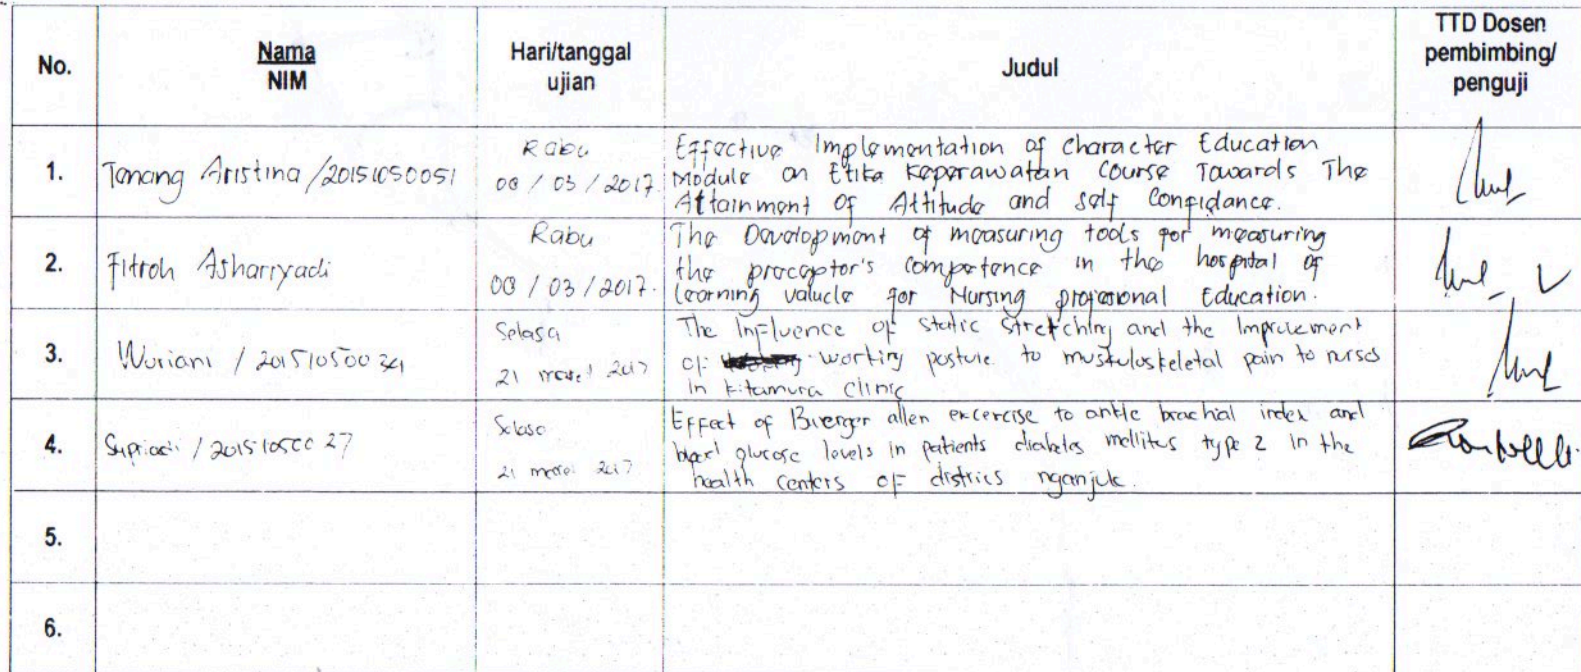 No.
Nama
NIM
Hari/tanggal
ujian
Judul
TTD Dosen
pembimbing/
penguji
1.
Tenang Aristina /20151050051
Rabu
08 / 03 / 2017.
Effective Implementation of character Education
Module on Etika Keperawatan Course Towards The
Attainment Of Attitude and self Confidance.
2.
Fitroh Asharryadi
Rabu
08 / 03 / 2017.
The Development of measuring tools for measuring
the preceptor's competence in the hospital of
learning for Nursing Education.
3.
Wuriani /
Selasa
21 maret 2017
The Influence of static stretching and the Improvement
of working posture to muskuloskeletal pain to nurses
in kitamura clinic
4.
Supriadi / 20151050027
Selasa
21 maret 2017
Effect of Buerger allen excercise to ankle brachial index and
blood glucose levels in patients diabetes mellitus type 2 in the
health centers of districs nganjuk.
5.
6.